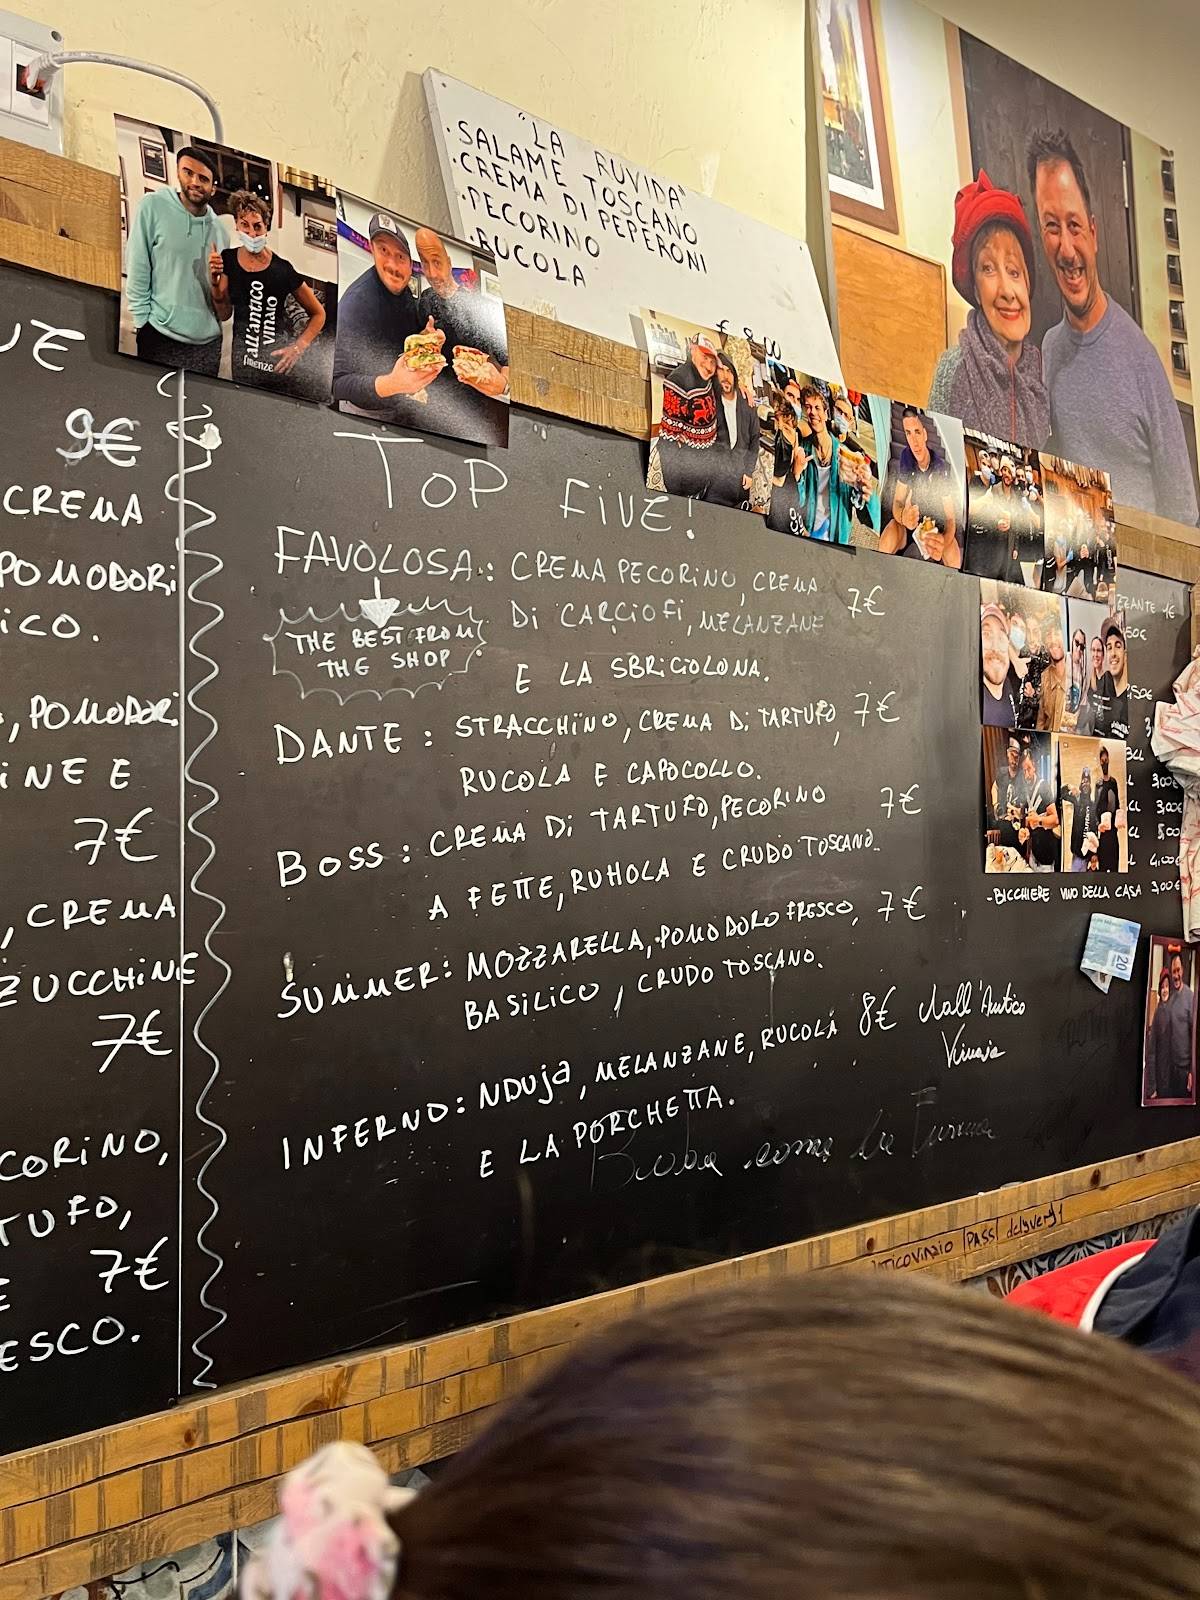 "LA RUVIDA"
·SALAME TOSCANO
·CREMA DI PEPERONI
·PECORINO
·RUCOLA
€ 8,00
all'antico
vinaio
FIRENZE
9€
CREMA
POMODORI
ICO.
, POMODORI
INE E
7€
, CREMA
ZUCCHINE
7€
CORINO,
TUFO,
7€
ESCO.
TOP FIVE!
FAVOLOSA: CREMA PECORINO, CREMA 7€
DI CARCIOFI, MELANZANE
THE BEST FROM
THE SHOP
E LA SBRICIOLONA.
DANTE: STRACCHINO, CREMA DI TARTUFO, 7€
RUCOLA E CAPOCOLLO.
BOSS: CREMA DI TARTUFO, PECORINO 7€
A FETTE, RUHOLA E CRUDO TOSCANO.
SUMMER: MOZZARELLA, POMODORO FRESCO, 7€
BASILICO, CRUDO TOSCANO.
INFERNO: NDUJA, MELANZANE, RUCOLA 8€
E LA PORCHETTA.
dall'Antico
Vinaio
ZZANTE 1€
,50€
3,00€
3,00€
5,00€
4,00€
-BICCHIERE VINO DELLA CASA 3,00€
20
TICOVINAIO |PASS|